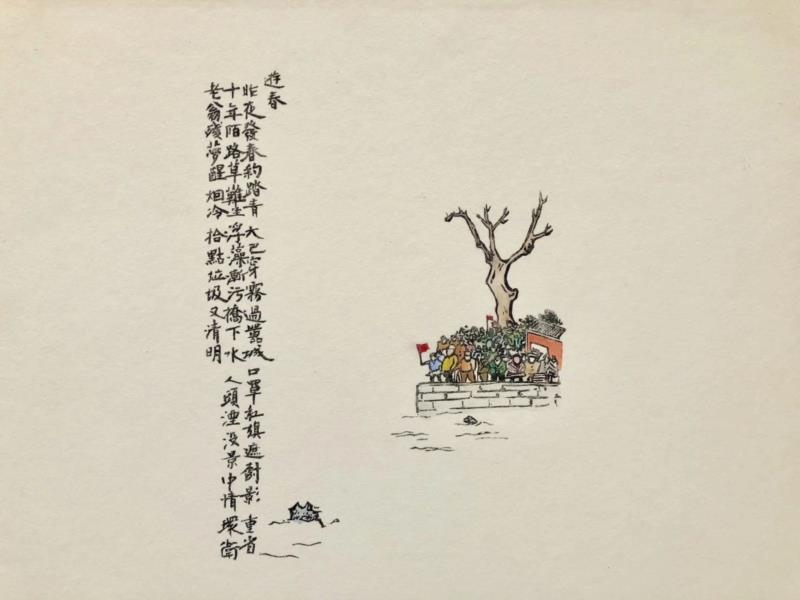 遊春
昨夜發春約踏青 大巴穿霧過囂城 口罩紅旗遮樹影 重省
十年陌路草難生 浮藻漸污橋下水 人頭湮没景中情 環衛
老翁殘夢醒 烟冷 拾點垃圾又清明